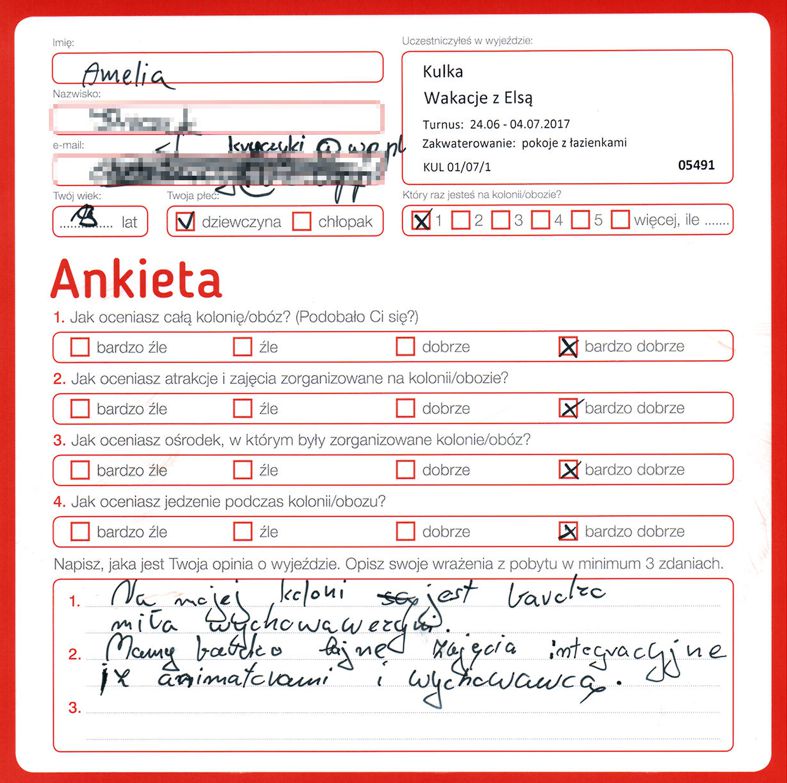 Imię:
Amelia
Uczestniczyłeś w wyjeździe:
Kulka
Wakacje z Elsą
Turnus: 24.06 - 04.07.2017
Zakwaterowanie: pokoje z łazienkami
KUL 01/07/1 05491
Nazwisko:
e-mail:
@wp.pl
Twój wiek:
lat
Twoja płeć:
dziewczyna chłopak
Który raz jesteś na kolonii/obozie?
1 2 3 4 5 więcej, ile .......
Ankieta
1. Jak oceniasz całą kolonię/obóz? (Podobało Ci się?)
bardzo źle źle dobrze bardzo dobrze
2. Jak oceniasz atrakcje i zajęcia zorganizowane na kolonii/obozie?
bardzo źle źle dobrze bardzo dobrze
3. Jak oceniasz ośrodek, w którym były zorganizowane kolonie/obóz?
bardzo źle źle dobrze bardzo dobrze
4. Jak oceniasz jedzenie podczas kolonii/obozu?
bardzo źle źle dobrze bardzo dobrze
Napisz, jaka jest Twoja opinia o wyjeździe. Opisz swoje wrażenia z pobytu w minimum 3 zdaniach.
1. Na mojej koloni jest bardzo
miła
2. Mamy bardzo fajne zajęcia integracyjne
z animatorami i wychowawcą.
3.